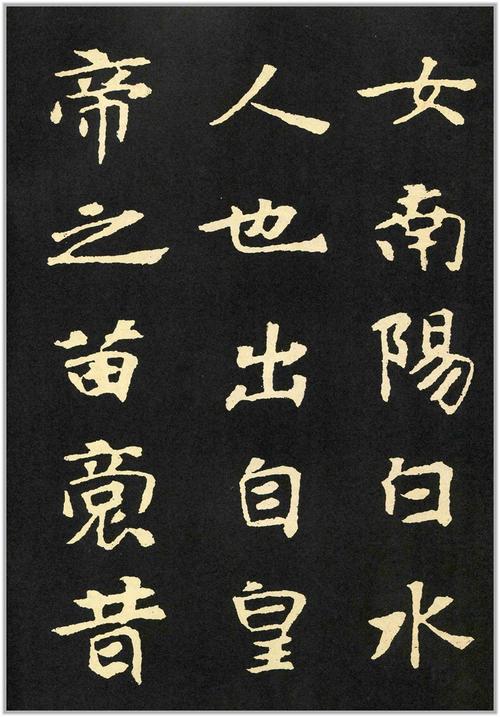 女南陽白水
人也出自皇
帝之苗裔昔